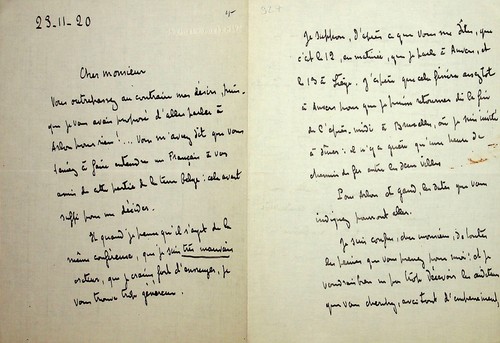 23-11-20
Cher monsieur
Vous outrepassez au contraire mes désirs, puis-
que je vous avais proposé d'aller parler à
Arlon pour rien !... Vous m'avez dit que vous
teniez à faire entendre un Français à vos
amis de cette partie de la terre belge : cela avait
suffi pour me décider.
Et quand je pense qu'il s'agit de la
même conférence, que je suis très mauvais
orateur, que je crains fort d'ennuyer, je
vous trouve trop généreux.
927
Je suppose, d'après ce que vous me dites, que
c'est le 12, en matinée, que je parle à Anvers, et
le 13 à Liège. J'espère que cela finira assez tôt
à Anvers pour que je puisse retourner dès la fin
de l'après-midi à Bruxelles, où je suis invité
à dîner : il n'y a guère qu'une heure de
chemin de fer entre les deux villes.
Pour Arlon et Gand, les dates que vous
indiquez pourront aller.
Je suis confus, cher monsieur, de toutes
les peines que vous prenez pour moi : et je
voudrais bien ne pas trop décevoir les auditeurs
que vous cherchez, avec tant d'empressement,